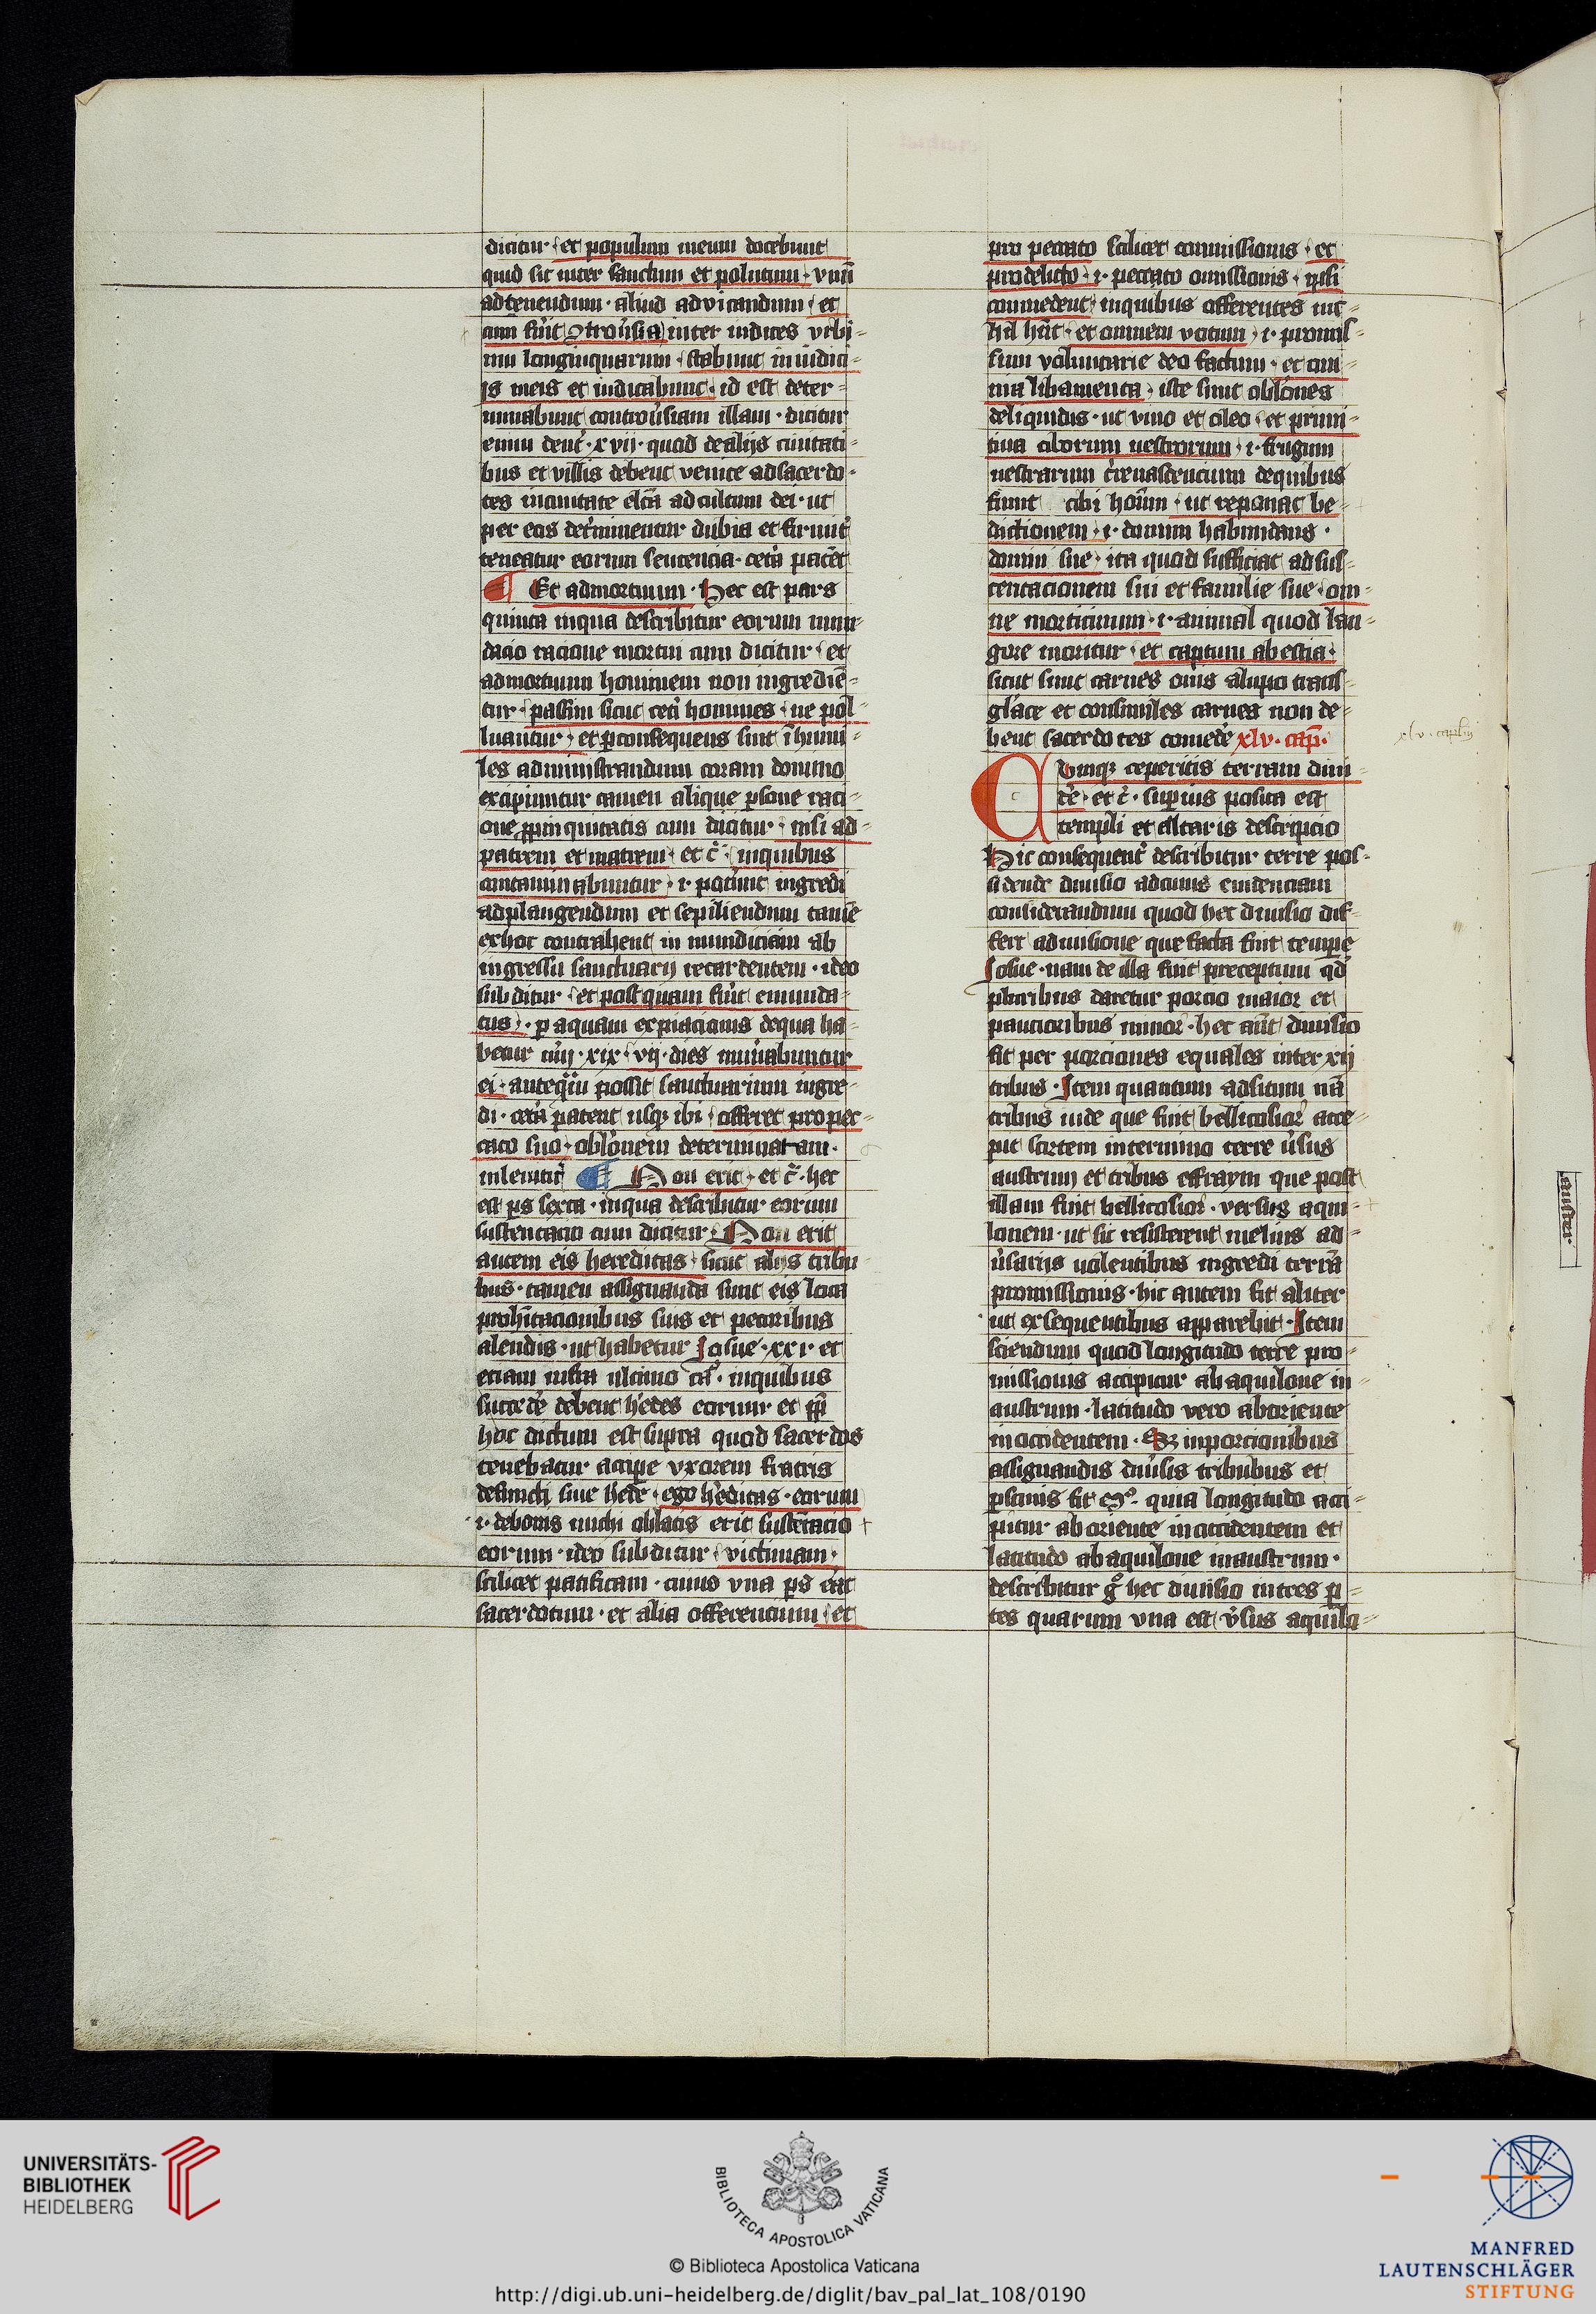 dicitur · et populum meum docebunt
quid sit inter sanctum et polutum · vnũ
ad tenendum · aliud ad vitandum · et
cum fũit ꝯtrou̓sia inter iudices vrbi=
um longinquarum · stabunt in iudici=
js meis et iudicabunt · id est deter=
minabunt controu̓siam illam · dicitur
enim deut̓ · xvij · quod de alijs ciuitati=
bus et villis debent venire ad sacerdo=
tes in ciuitate elc̃a ad cultum dei · ut
per eos det̓minentur dubia et firmit̓
teneatur eorum sentencia · cet̓a patẽt
¶ Et ad mortuum · Hec est pars
quinta in qua describitur eorum mun=
dacio racione mortui cum dicitur · et
ad mortuum hominem non ingrediẽ=
tur · passim sicut cet̓i homines · ne pol=
luantur · et ꝑ consequens sint ĩhabi=
les ad ministrandum coram domino
excipiuntur tamen alique ꝑsone raci=
one ꝓpinquitatis cum dicitur · nisi ad=
patrem et matrem · et c̃ · in quibus
contaminabuntur · i · pot̓unt ingredi
ad plangendum et sepeliendum tamẽ
ex hoc contrahent in mundiciam ab
ingressu sanctuarij retardentem · ideo
subditur · et postquam fũit emunda=
tus · ꝑ aquam expiacionis de qua ha=
betur nũi · xix · vij · dies num̓abuntur
ei · anteq̃m possit sanctuarium ingre=
di · cet̓a patent usqꝫ ibi · offeret pro pec=
cato suo · oblõnem determinatam ·
in leuitic̓ ¶ Non erit · et c̃ · hec
est ꝑs sexta · in qua describitur eorum
sustentacio cum dicitur · Non erit
autem eis hereditas · sicut alijs tribu
bus · tamen assignanda sunt eis loca
pro hĩtacionibus suis et pecoribus
alendis · ut habetur Josue · xxi · et
eciam infra ultimo cã · in quibus
succede̓ debent h̓edes eorum et ꝓpt̃
hoc dictum est supra quod sacerdos
tenebatur accipe vxorem fratris
defuncti sine hede̓ · ego h̓editas · eorum
· i · de bonis michi oblatis erit sustẽtacio
eorum · ideo subditur · victimam ·
scilicet pacificam · cuius vna ꝑs erat
sacerdotum · et alia offerencium · et
pro peccato scilicet commissionis · et
pro delicto · i · peccato omissionis · ipsi
commedent · in quibus offerentes nic=
hil hñt · et omnem votum · i · promis=
sum voluntarie deo factum · et om=
nia libamenta · iste sunt oblõnes
de liquidis · ut vino et oleo · et primi=
tiua ciborum uestrorum · i · frugum
uestrarum t̓re nascencium de quibus
fiunt cibi hom̃m · ut reponat be=
dictionem · i · donum habundans ·
domui sue · ita quod sufficiat ad sus=
tentacionem sui et familie sue · om=
ne morticinum · i · animal quod lan=
gore moritur · et captum a bestia ·
sicut sunt carnes ouis a lupo trans=
glute et consimiles carnes non de=
bent sacerdotes comede̓ xlv · cap̃ ·
xlv · caplm
CVmqꝫ ceperitis terram diui=
de̓ · et c̓ · superius posita est
templi et altaris descripcio
Hic consequent̓ describitur terre pos=
sidende diuisio ad cuius euidenciam
considerandum quod hec diuisio dif=
fert a diuisione que facta fuit tempe
Josue · nam de illa fuit preceptum qđ
pluribus daretur porcio maior et
paucioribus minor · hec aũt diuisio
fit per porciones equales inter xij
tribus · Item quantum ad situm nã
tribus iude que fuit bellicosior̓ acce=
pit sortem in termino terre ṽsus
austrum et tribus effraym que post
illam fuit bellicosior · versus aqui=
lonem · ut sic resisterent melius ad=
ṽsarijs uolentibus ingredi terrã
promissionis · hic autem fit aliter
ut ex sequentibus apparebit · Item
sciendum quod longitudo terre pro=
missionis accipitur ab aquilone in=
austrum · latitudo vero ab oriente
in occidentem · Sꝫ in porcionibus
assignandis diu̓sis tribubus et
ꝑsonis fit eº · quia longitudo acci=
pitur ab oriente in occidentem et
latitudo ab aquilone in austrum ·
describitur gͦ hec diuisio in tres ꝑ=
tes quarum vna est ṽsus aquilo=
auster
UNIVERSITÄTS-
BIBLIOTHEK
HEIDELBERG
BIBLIOTECA APOSTOLICA VATICANA
© Biblioteca Apostolica Vaticana
http://digi.ub.uni-heidelberg.de/diglit/bav_pal_lat_108/0190
MANFRED
LAUTENSCHLÄGER
STIFTUNG